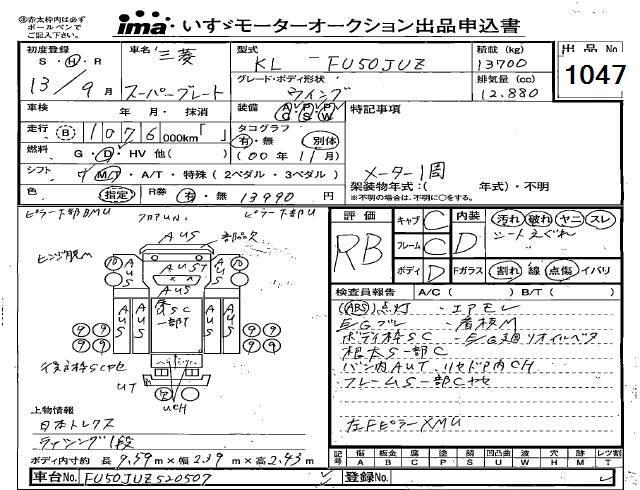 ㊟赤太枠内は必ず
ボールペンで
ご記入下さい。
ima・いすゞモーターオークション出品申込書
初度登録 S・H・R 13/9月
車名 三菱 スーパーグレート
型式 KL FU50JUZ
積載 (kg) 13700
出品No 1047
グレード・ボディ形状 ウイング
排気量 (cc) 12.880
車検 年 月・抹消
装備 A/C P/S P/W S/W
特記事項
走行 B 1076 000km「 」
タコグラフ 有・無 別体
燃料 G・D・HV 他( )
(00年11月)
シフト 7 M/T・A/T・特殊(2ペダル・3ペダル)
メーター1周
架装物年式:( 年式)・不明
※不明の場合は、不明に〇をする。
色 指定 R券 有・無 13990 円
ピラー下部BMU フロアUN. ピラー下部U
評価 RB
キャブ C
フレーム C
ボディ D
内装 D
汚れ 破れ ヤニ スレ
シートえぐれ
Fガラス 割れ 線 点傷 イバリ
AUS 部品欠
ヒンジ脱M
10 AUS AUST AUS 10
AUS
AUS AUS USC 一部T AUS AUS
9 9 9 9
9 9 9 9
UT
UCH
検査員報告 A/C( ) B/T( )
(ABS)点灯・エアモレ
E/Gブレ・看板M
ボディ枠SC・E/G廻リオイルベタ
根本S一部C
バン内AUT・リヤドア内CH
フレームS一部Cサセ
左FピラーXMU
上物情報
日本トレクス
ウイング1段
ボディ内寸約 長9.59m×幅2.39m×高2.43m
記号 傷A 板金B 腐C 塗P 錆S 凹凸曲U 波W 穴H 跡M レツ割T
車台No. FU50JUZ520507
登録No.